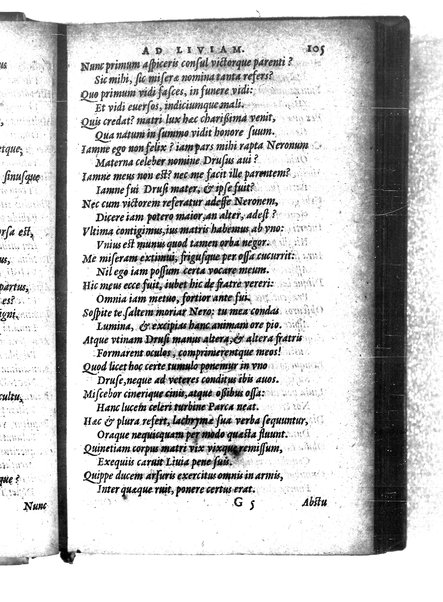 etque,
sinuſque
partus,
igni,
cultu,
que ?
Nunc
AD LIVIAM. 105
Nunc primum aſpiceris conſul victorque parenti ?
Sic mihi, ſic miſeræ nomina tanta refers?
Quo primum vidi faſces, in funere vidi:
Et vidi euerſos, indiciumque mali.
Quis credat? matri lux hæc chariſsima venit,
Qua natum in ſummo vidit honore ſuum.
Iamne ego non felix ? iam pars mihi rapta Neronum
Materna celeber nomine Druſus aui ?
Iamne meus non eſt? nec me facit ille parentem?
Iamne fui Druſi mater, & ipſe fuit?
Nec cum victorem referatur adeſſe Neronem,
Dicere iam potero maior, an alter, adeſt ?
Vltima contigimus, ius matris habemus ab vno:
Vnius eſt munus quod tamen orba negor.
Me miſeram extimui, friguſque per oſſa cucurrit:
Nil ego iam poſſum certa vocare meum.
Hic meus ecce fuit, iubet hic de fratre vereri:
Omnia iam metuo, fortior ante fui.
Soſpite te ſaltem moriar Nero: tu mea condas
Lumina, & excipias hanc animam ore pio.
Atque vtinam Druſi manus altera, & altera fratris
Formarent oculos, comprimerentque meos!
Quod licet hoc certe tumulo ponemur in vno
Druſe, neque ad veteres conditus ibis auos.
Miſcebor cinerique cinis, atque oſsibus oſſa:
Hanc lucem celeri turbine Parca neat.
Hæc & plura refert, lachrymæ ſua verba ſequuntur,
Oraque nequiſquam per modo quæſta fluunt.
Quinetiam corpus matri vix vixque remiſſum,
Exequiis caruit Liuia pene ſuis.
Quippe ducem arſuris exercitus omnis in armis,
Inter quæque ruit, ponere certus erat.
G 5 Abſtu